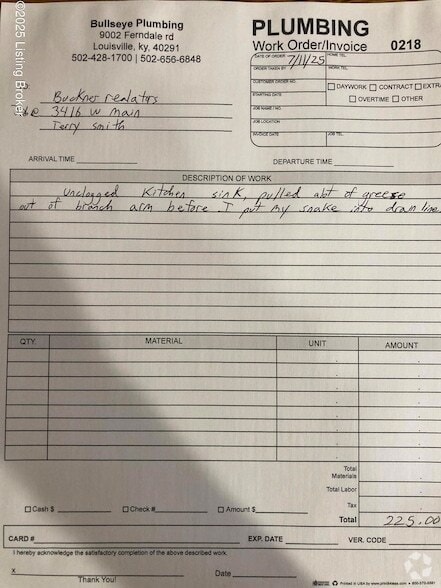 ©2025 Listing Broker
Bullseye Plumbing
9002 Ferndale rd
Louisville, ky, 40291
502-428-1700 | 502-656-6848
PLUMBING
Work Order/Invoice 0218
DATE OF ORDER 7/11/25 HOME TEL.
ORDER TAKEN BY WORK TEL.
CUSTOMER ORDER NO.
STARTING DATE
☐ DAYWORK ☐ CONTRACT ☐ EXTRA
☐ OVERTIME ☐ OTHER
JOB NAME / NO.
JOB LOCATION
INVOICE DATE JOB TEL.
Buckner realators
3416 w main
Terry smith
ARRIVAL TIME DEPARTURE TIME
DESCRIPTION OF WORK
Unclogged Kitchen sink, pulled abt of greese
out of branch arm before I put my snake into drain line
QTY. MATERIAL UNIT AMOUNT
Total Materials
Total Labor
☐ Cash $ ☐ Check # ☐ Amount $ Tax
Total 225.00
CARD # EXP. DATE VER. CODE
I hereby acknowledge the satisfactory completion of the above described work.
X Date
Thank You!
Printed in USA by www.printkwiss.com